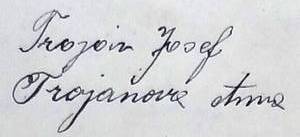 Trojan Josef
Trojanova Anna